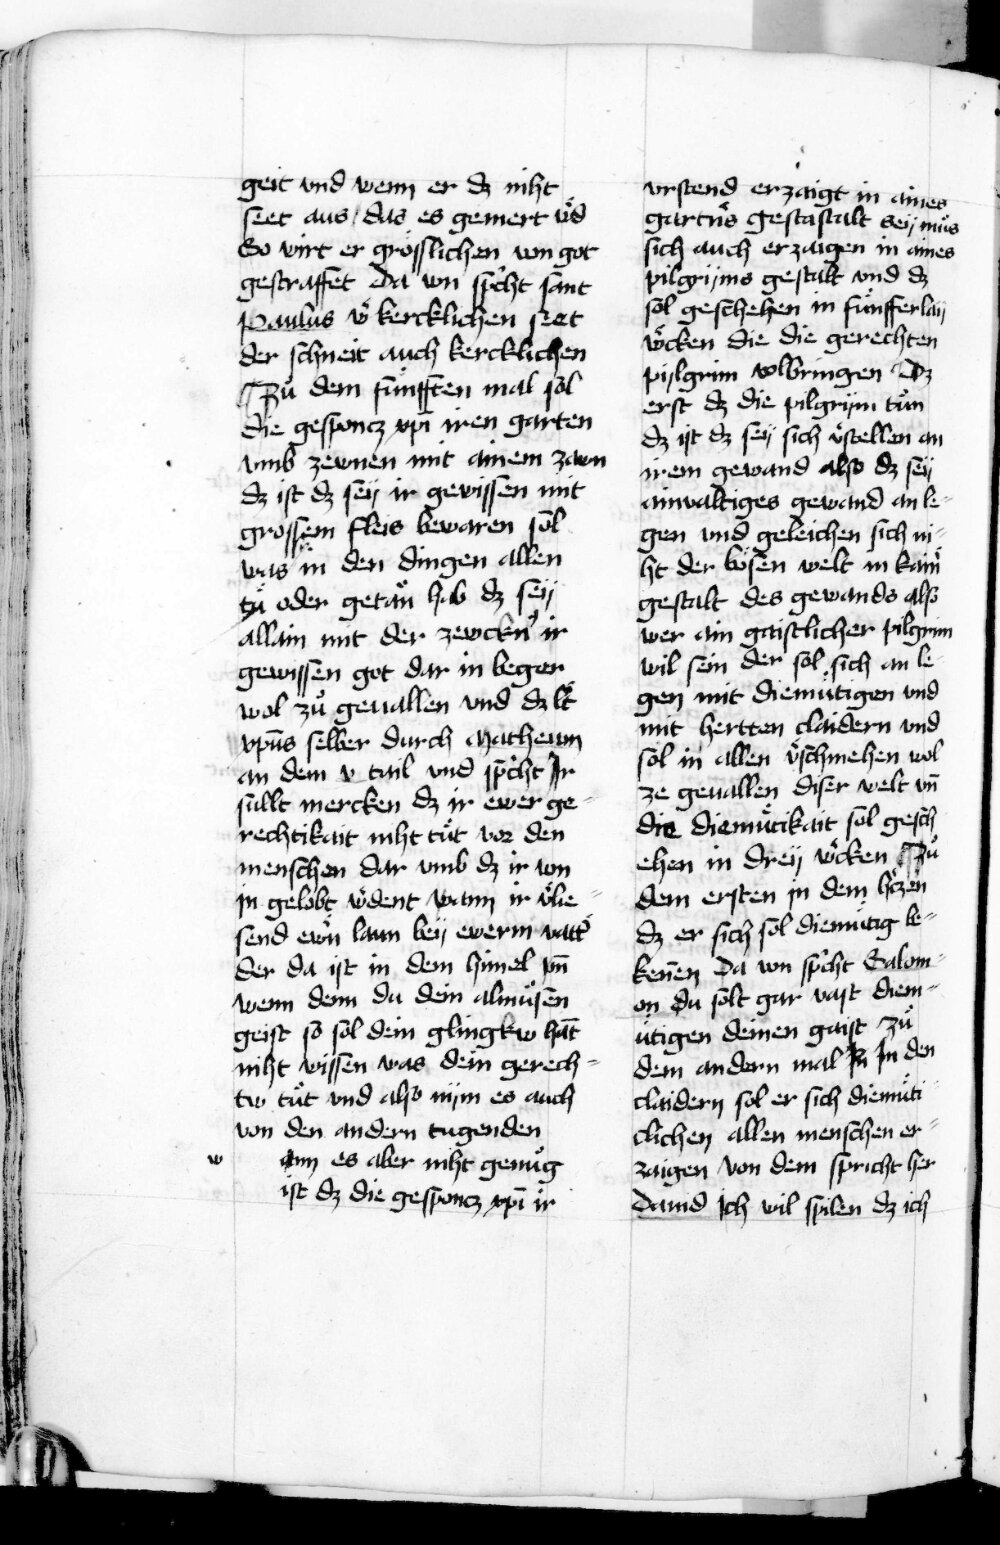 geit vnd wenn er dz niht
seet aus / das es gemert wd
So wirt er grösslichen von got
gestraffet Da von spͨht sant
Paulus w kercklichen seet
der schneit auch kercklichen
¶ Zů dem fünfften mal sol
die gesponcz xpi iren garten
vmb zewnen mit ainem zawn
dz ist dz seÿ ir gewissen mit
grossem fleis bewaren sol
was in den dingen allen
tü oder getan hab dz seÿ
allain mit der zewckn ir
gewissen got dar in beger
wol zů geuallen vnd dz lt
xpus selber durch Matheum
an dem v tail vnd spͨht Ir
süllt mercken dz ir ewer ge-
rechtikait niht tůt vor den
menschen dar vmb dz ir von
in gelobt wdent wann ir vlie-
send ewn laun beÿ ewerm vatt
der da ist in dem himel vn
wenn denn du dein almůsen
geist so sol dein glingkw hāt
niht wissen was dein gerech-
tw tůt vnd also nijm es auch
von den andern tugenden
w ann es aber niht genůg
ist dz die gesponcz xpi ir
vrstend erzaigt in aines
gartns gestastalt seÿ můs
sich auch erzaigen in aines
pilgrijms gestalt vnd dz
sol geschehen in fünfferlaÿ
wcken die die gerechten
pijlgrim volbringen Dz
erst dz die pilgrijm tůn
dz ist dz seÿ sich vstellen an
irem gewand also dz seÿ
ainualtiges gewand an le-
gen vnd geleichen sich ni-
ht der bösen welt in kain
gestalt des gewands also
wer ain gaistlicher pilgrim
wil sein der sol sich an le-
gen mit diemůtigen vnd
mit hertten claidern vnd
sol in allen vschmehen wol
ze geuallen diser welt vn
die diemůtikait sol gesch
ehen in dreÿ wcken ¶ Zů
dem ersten in dem hczen
dz er sich sol diemůtig be-
kenen Da von spͨht Salom-
on du solt gar vast diem-
ütigen deinen gaist Zů
dem andern mal In den
claidern sol er sich diemůti
clichen allen menschen er-
zaigen von dem spricht her
Dauid Ich wil spilen dz ich